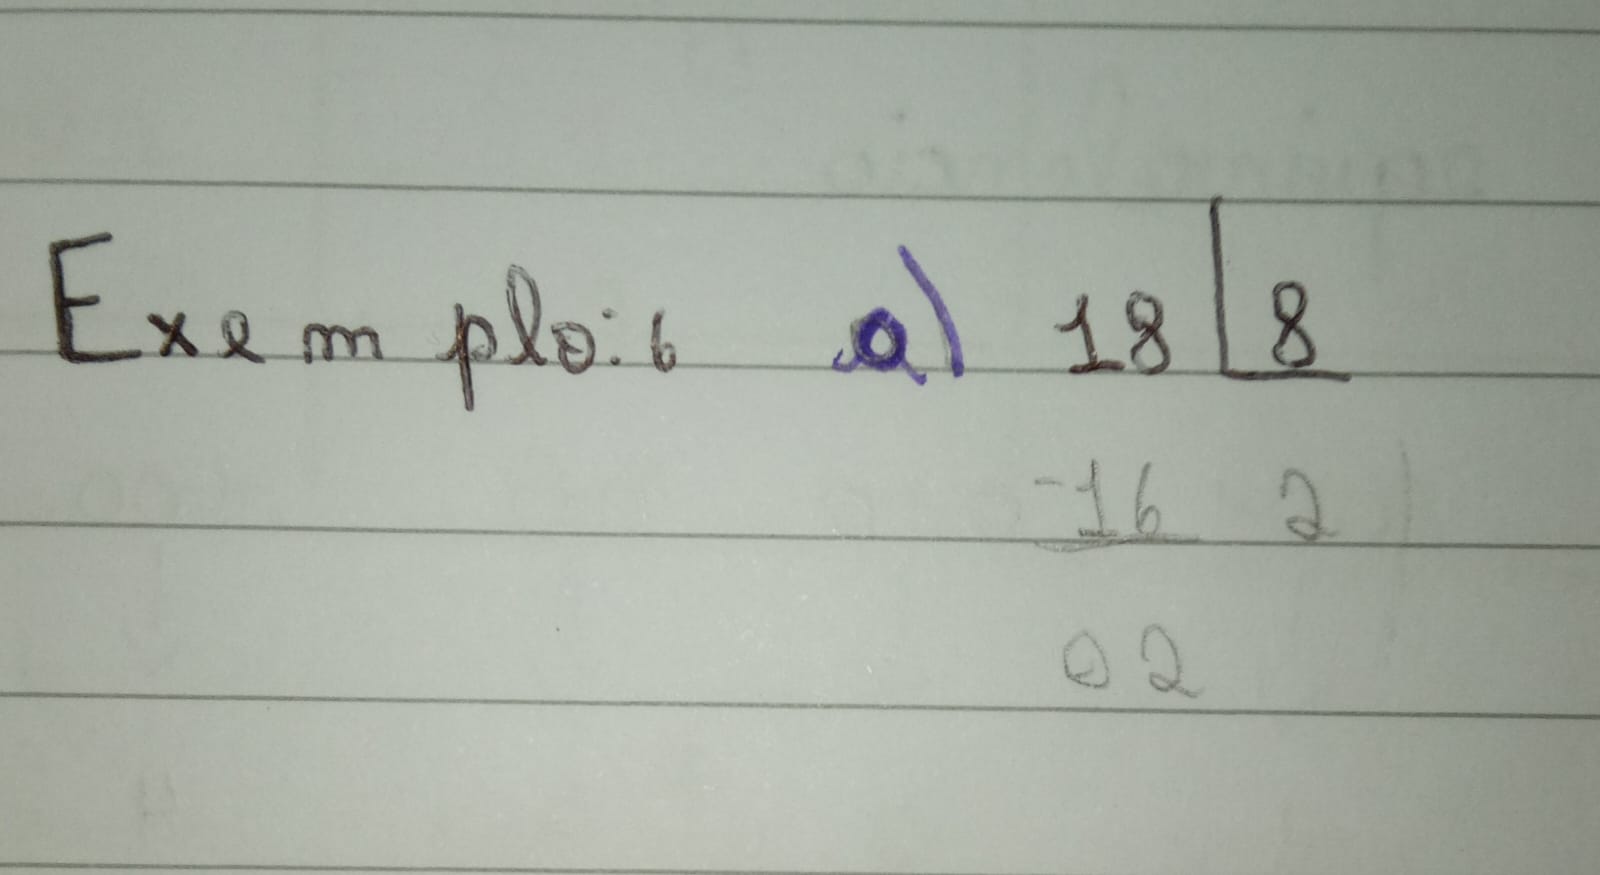 Exemplo: 6 a) 18 8
-16 2
02